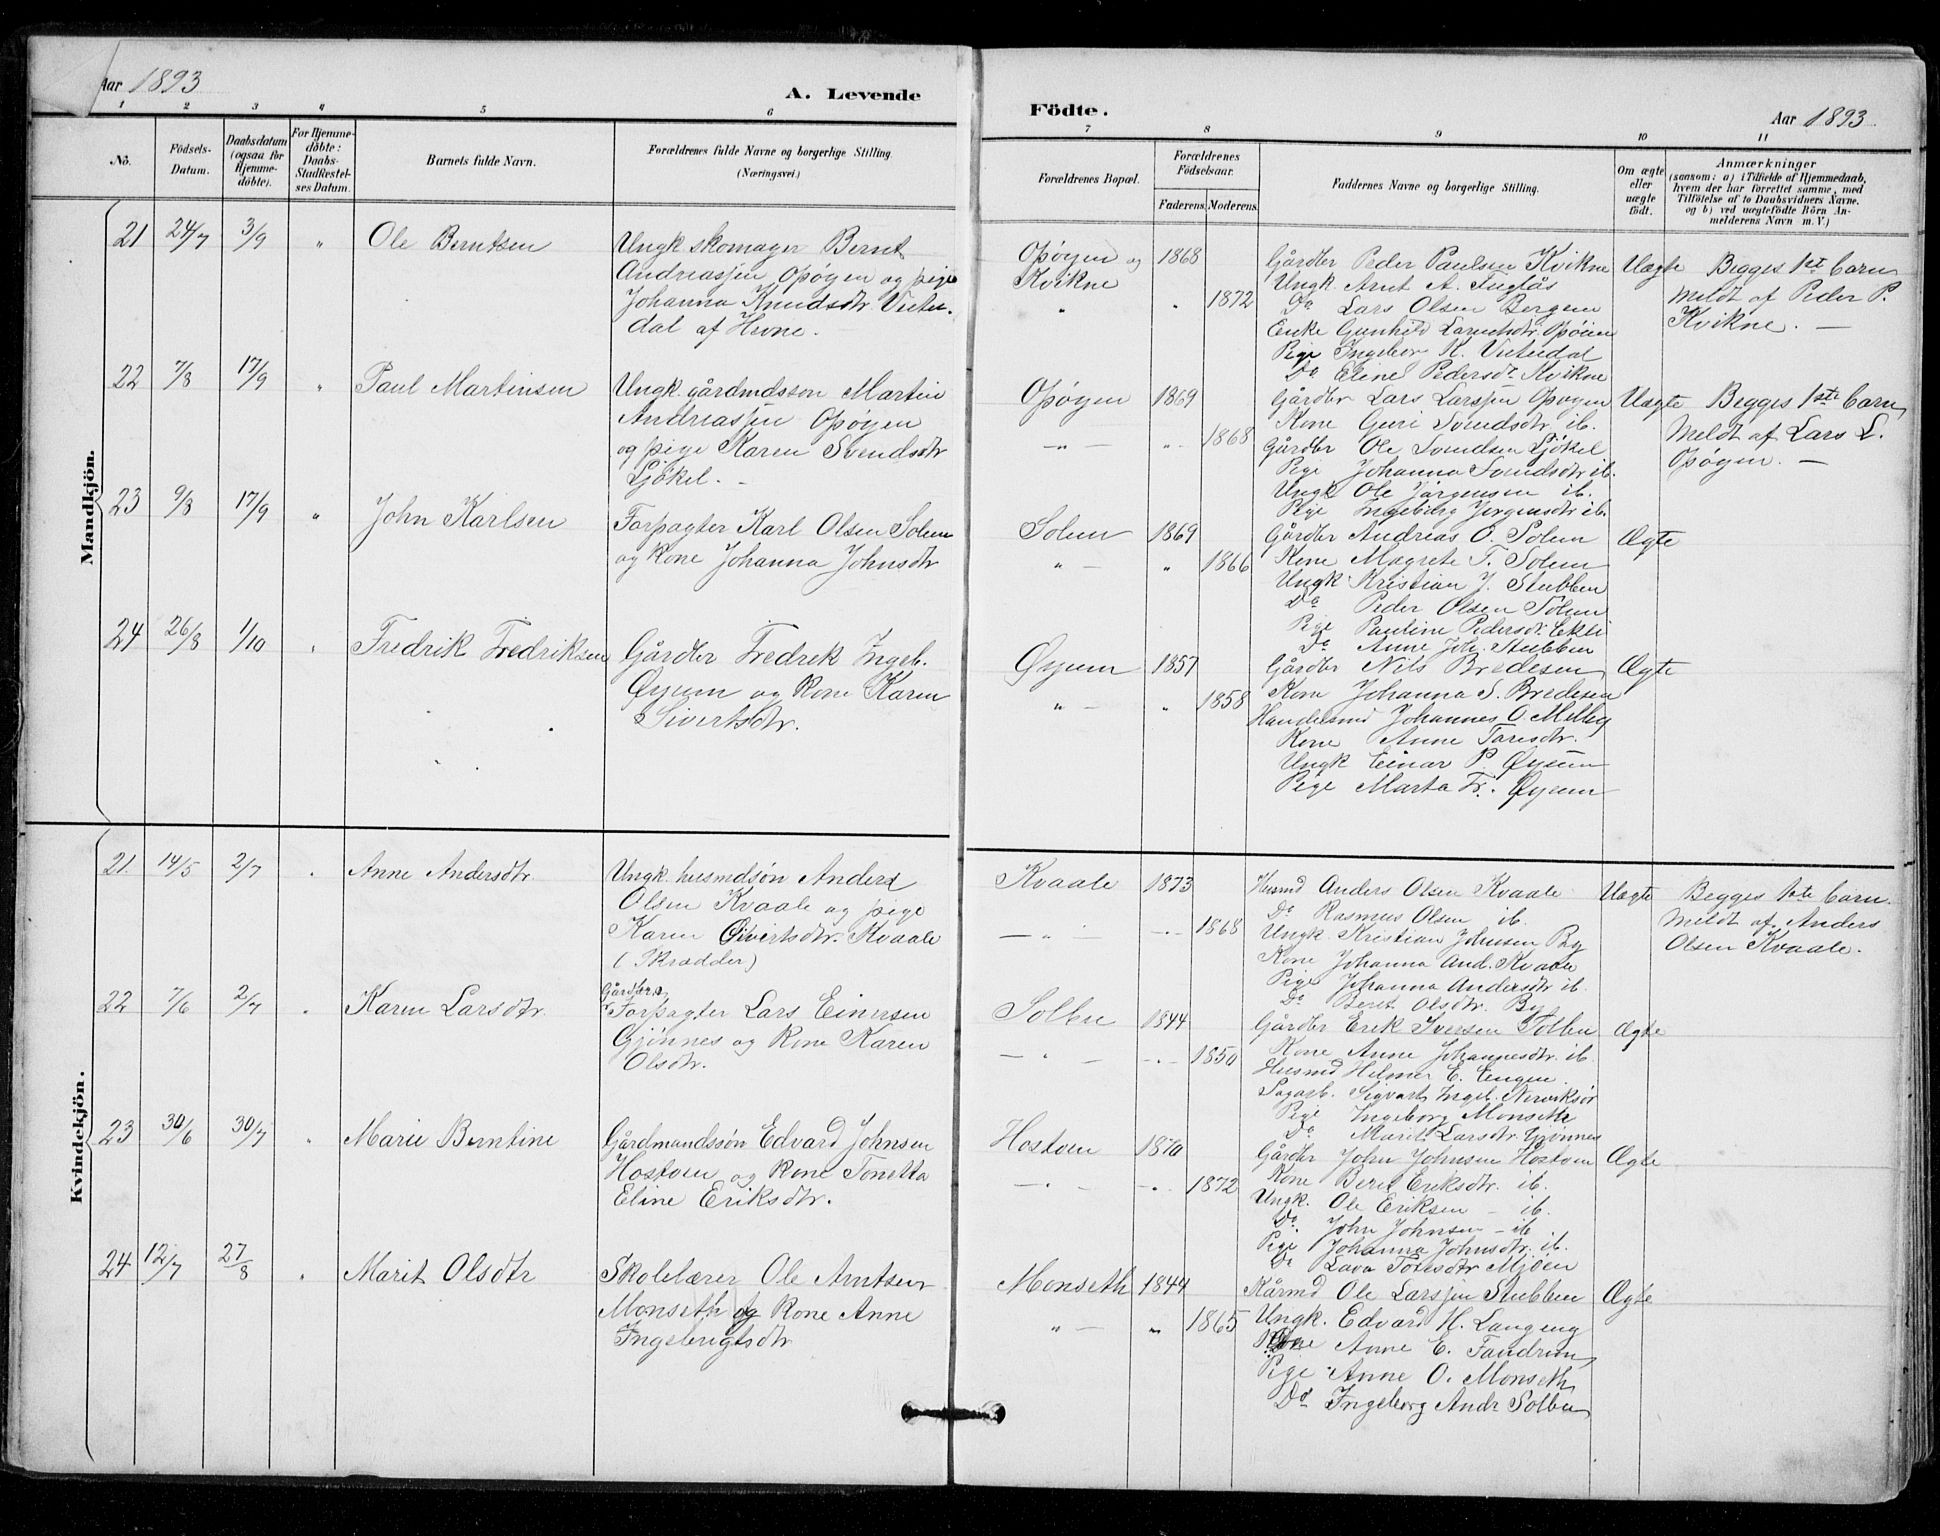 Aar 1893
A. Levende
Födte.
Aar 1893
1 2 3 4 5 6 7 8 9 10 11
No.
Födsels-Datum.
Daabsdatum (ogsaa för Hjemmedöbte).
For Hjemmedöbte: Daabs-Stadfæstelses Datum.
Barnets fulde Navn.
Forældrenes fulde Navne og borgerlige Stilling.
(Næringsvei.)
Forældrenes Bopæl.
Forældrenes Födselsaar.
Faderens. Moderens.
Faddernes Navne og borgerlige Stilling.
Om ægte eller uægte födt.
Anmærkninger
(saasom: a) i Tilfælde af Hjemmedaab,
hvem der har forrettet samme, med
Tilföielse af to Daabsvidners Navne.
og b) ved uægtefödte Börn Anmelderens Navn m. V.)
Mandkjön.
21 24/7 3/9 " Ole Berntsen
Ungk skomager Bernt
Andreassen Opøyen og pige
Johanna Knudsdtr
dal af Hevne.
Opøyen og 1868
Kvikne
" " 1872
Gårdbr Peder Paulsen Kvikne
Ungk Arnt A. Fuglås
Do Lars Olsen Bergem
Enke Gunhild Opøien
Pige Ingebor K.
Do Eline Pedersdt Kvikne
Uægte
Begges 1st barn
Meldt af Peder P.
Kvikne. —
22 7/8 17/9 " Paul Martinsen
Ungk gårdmdssøn Martin
Andreassen Opøyen
og pige Karen Svendsdtr
Ljøkel. -
Opøyen 1869
- " - " 1868
Gårdbr Lars Larssen Opøyen
Kone Guri Svendsdtr ib.
Gårdbr Ole Svendsen Ljøkel
Pige Johanna Svendsdtr ib.
Ungk Ole Jørgensen ib.
Pige Ingeborg Jørgensdtr ib.
Uægte
Begges 1ste barn
Meldt af Lars L.
Opøyen. —
23 9/8 17/9 " John Karlsen
Forpagter Karl Olsen Solem
og kone Johanna Johnsdtr
Solem 1869
" — " 1866
Gårdbr Andreas O. Solem
Kone Magrete T. Solem
Ungk Kristian J. Stubben
Do Peder Olsen Solem
Pige Pauline Pedersdt. Ekli
Do Anne Joh. Stubben
Ægte
24 26/8 1/10 " Fredrik Fredriksen
Gårdbr Fredrik Ingeb.
Øyum og kone Karen
Sivertsdtr.
Øyum 1857
" — " 1858
Gårdbr Nils Bredesen
Kone Johanna S. Bredesen
Handelsmd Johannes O. Melby
Kone Anne Toresdtr.
Ungk Einar P. Øyum
Pige Marta Fr. Øyum
Ægte
Kvindekjön.
21. 14/5 2/7 " Anne Andersdtr.
Ungk. husmdsøn Anders
Olsen Kvaale og pige
Karen Sivertsdtr. Kvaale
(Skrædder)
Kvaale 1873
— " - - " - 1868
Husmd Anders Olsen Kvaale
Do Rasmus Olsen ib.
Ungk. Kristian Johnsen By
Kone Johanna And. Kvaale
Pige Johanna Andersdtr ib.
Do Beret Olsdtr. By
Uægte
Begges 1ste barn.
Meldt af Anders
Olsen Kvaale.
22 7/6 2/7 " Karen Larsdtr.
Gårdbr.
Forpagter Lars Einersen
Gjønnes og kone Karen
Olsdtr.
Solbu 1844
— " — - " - 1850
Gårdbr Erik Iversen Solbu
Kone Anne Johannesdtr. ib.
Husmd Helmer E. Engen
Sagarb. Sigvart Ingeb.
Pige Ingeborg Monseth
Do Marit Larsdtr. Gjønnes
Ægte
23 30/6 30/7 " Marie Berntine
Gårdmandssøn Edvard Johnsen
Hostoen og kone Tonetta
Eline Eriksdtr.
Hostoen 1870
— " - - " - 1872
Gårdbr John Johnsen Hostoen
Kone Beret Eriksdtr. ib.
Ungk. Ole Eriksen — ib.
Do. John Johnsen — ib
Pige Johanna Johnsdtr. ib.
Do Lava Toresdtr Mjøen
Ægte
24 12/7 27/8 " Marit Olsdtr
Skolelærer Ole Arntsen
Monseth og kone Anne
Ingebrigtsdtr
Monseth 1844
" — " 1865
Kårmd Ole Larssen Stubben
Ungk. Edvard H. Langeng
Kone Anne E. Fandrem
Pige Anne O. Monseth
Do Ingeborg Andr Solbu
Ægte